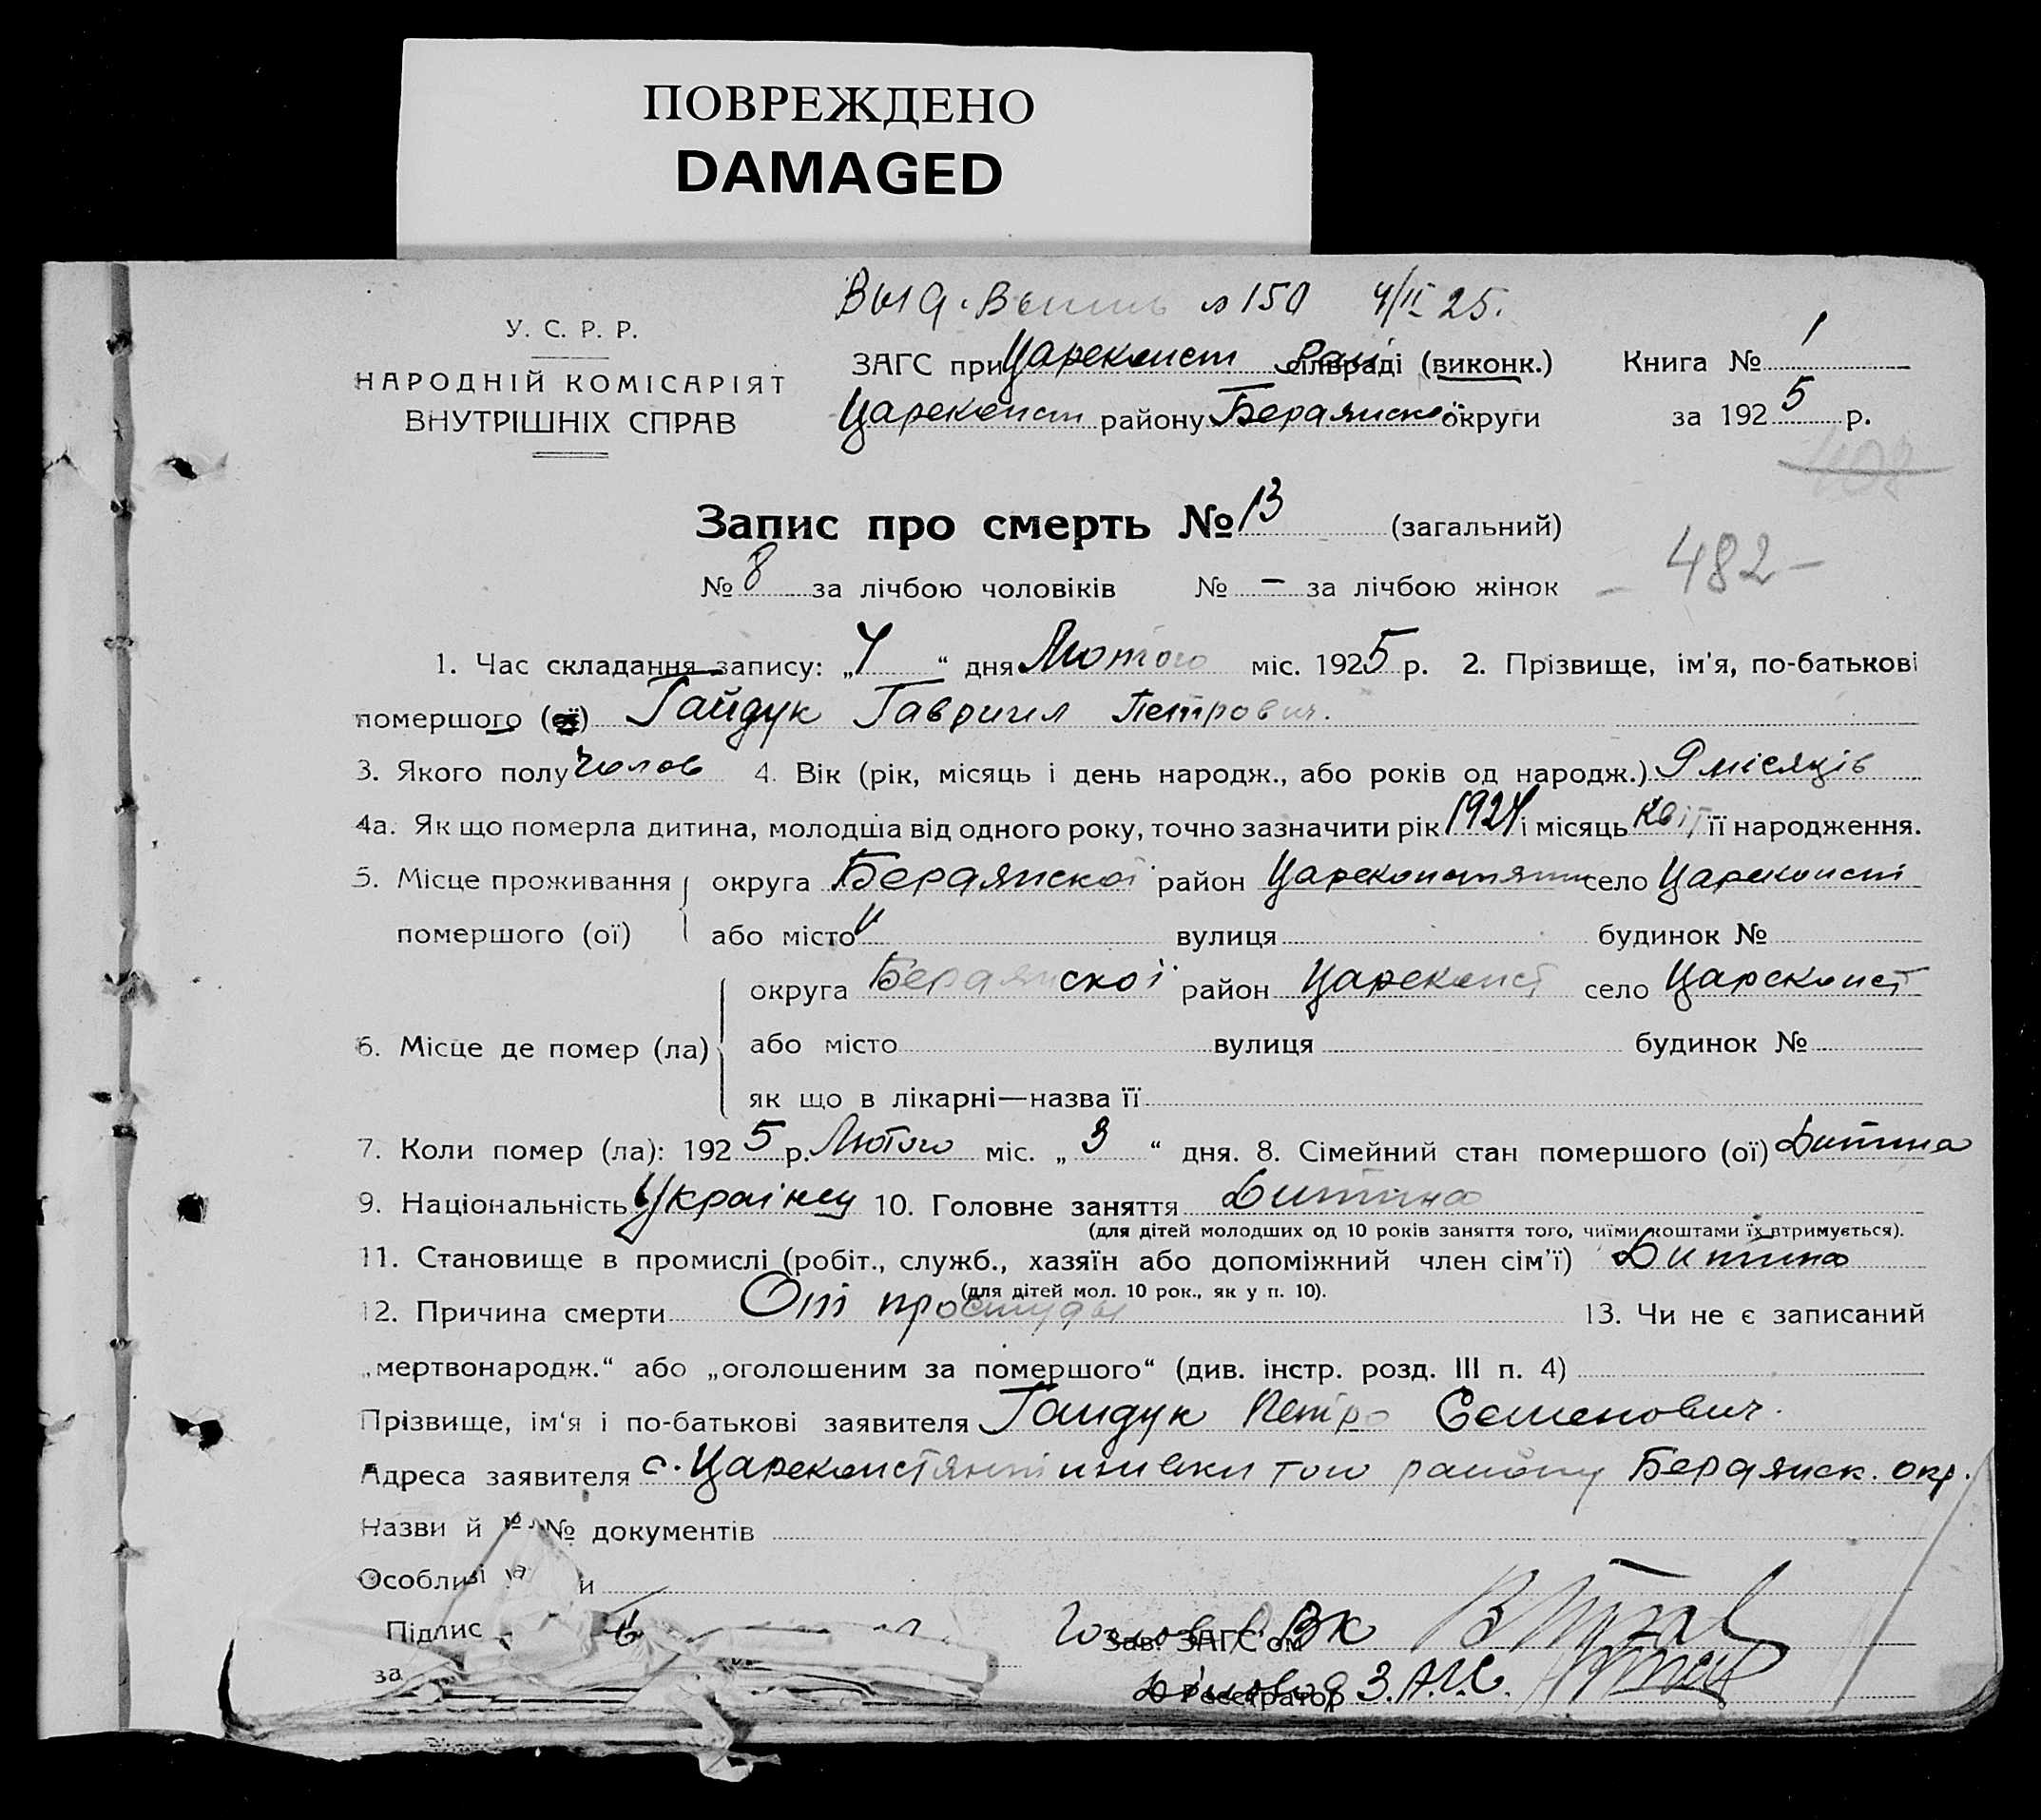 ПОВРЕЖДЕНО
DAMAGED
Выд. Выпись № 150 4/II 25.
У. С. Р. Р.
НАРОДНІЙ КОМІСАРІЯТ
ВНУТРІШНІХ СПРАВ
ЗАГС при Цареконст Рай сільраді (виконк.) Книга № 1
Цареконст району Бердянської округи за 1925 р.
408
Запис про смерть № 13 (загальний)
№ 8 за лічбою чоловіків № — за лічбою жінок
— 482 —
1. Час складання запису: „4“ дня Лютого міс. 1925 р. 2. Прізвище, ім'я, по-батькові
помершого (ої) Гайдук Гавриил Петрович.
3. Якого полу Чолов 4. Вік (рік, місяць і день народж., або років од народж.) 9 місяців
4а. Як що померла дитина, молодша від одного року, точно зазначити рік 1924 і місяць Квіт її народження.
5. Місце проживання округа Бердянскої район Царекконстянт село Царекконст
помершого (ої) або місто вулиця будинок №
округа Бердянскої район Царекконст село Царекконст
6. Місце де помер (ла) або місто вулиця будинок №
як що в лікарні—назва її
7. Коли помер (ла): 1925 р. Лютого міс. „3“ дня. 8. Сімейний стан помершого (ої) Дитина
9. Національність Українец 10. Головне заняття Дитина
(для дітей молодших од 10 років заняття того, чиїми коштами їх втримується).
11. Становище в промислі (робіт., служб., хазяїн або допоміжний член сім'ї) Дитина
(для дітей мол. 10 рок., як у п. 10).
12. Причина смерти От простуды 13. Чи не є записаний
„мертвонародж.“ або „оголошеним за помершого“ (див. інстр. розд. III п. 4)
Прізвище, ім'я і по-батькові заявителя Гайдук Петро Семенович.
Адреса заявителя с. Царекконстянтиновки того району Бердянск. окр.
Назви й № № документів
Особливі
Підпис Голова РВК Зав. ЗАГС'ом
за Діловод З.А.Г.С. Реєстратор